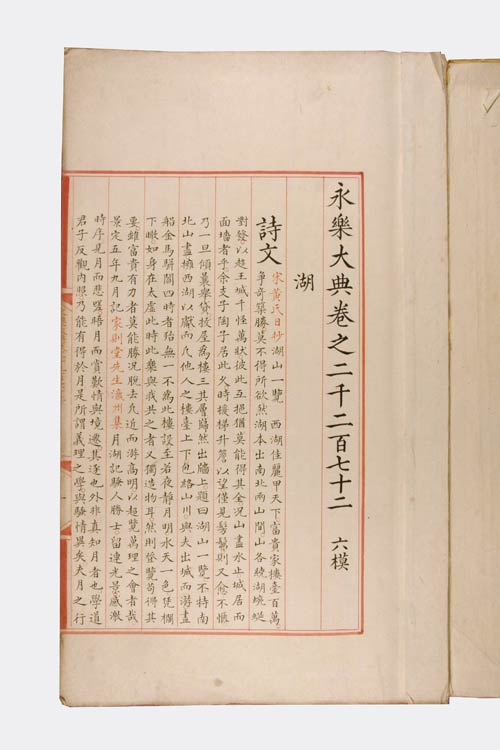 永樂大典卷之二千二百七十二 六模
湖
詩文 宋黃氏日抄湖山一覽 西湖佳麗甲天下富貴家樓臺百萬
爭奇築勝莫不得所欲然湖本出南北兩山間山各繞湖蜿蜒
對發以趨王城千怪萬狀彼此互抱猶莫能得其全况山盡水止城居而
面墻者乎余支子陶子居此久時接梯升簷以望僅見髣髴則又愈不愜
乃一旦傾囊舉貸投屋為樓三其層巋然出牆上題曰湖山一覽不特南
北山盡擁西湖以獻而凡他人之樓臺上下包絡山川與夫出城而游畫
船金馬駢闐四時者殆無一不為此樓設至若夜靜月明水天一色凭欄
下瞰如身在太虛此時此樂與我共之者又獨造物耳然則登覽苟得其
要雖富貴有力者莫能勝况脫去凡近而游高明以超覽萬理之會者哉
景定五年九月記家則堂先生瀛州集月湖記騷人勝士留連光景感激
時序見月而悲晤月而賞歎情與境遷其逐也外非真知月者也學道
君子反觀内照乃能有得於月是所謂義理之學與騷情異矣夫月之行